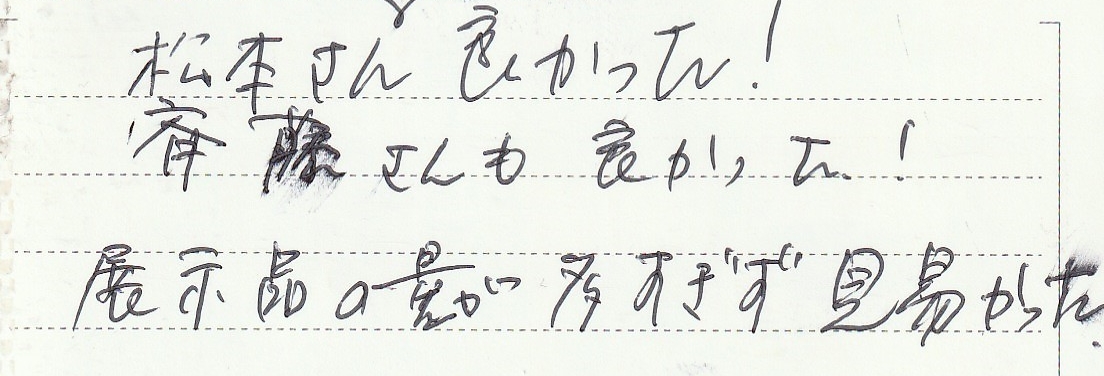 松本さん良かった!
斉藤さんも良かった!
展示品の量が多すぎず見易かった.